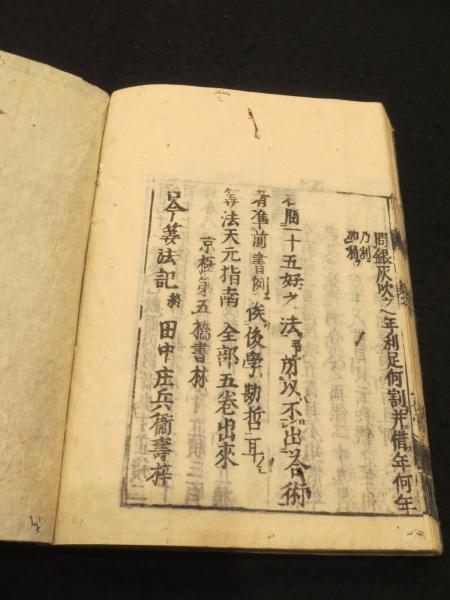 問銀灰吹之年利足何割并借年何年
乃利
右圖一十五好之法 所以不出答術
者隼前書例俟後學勘哲耳
筭法天元指南 全部五卷出來
京極第五橋書林
古今筭法記 終 田中庄兵衞壽梓